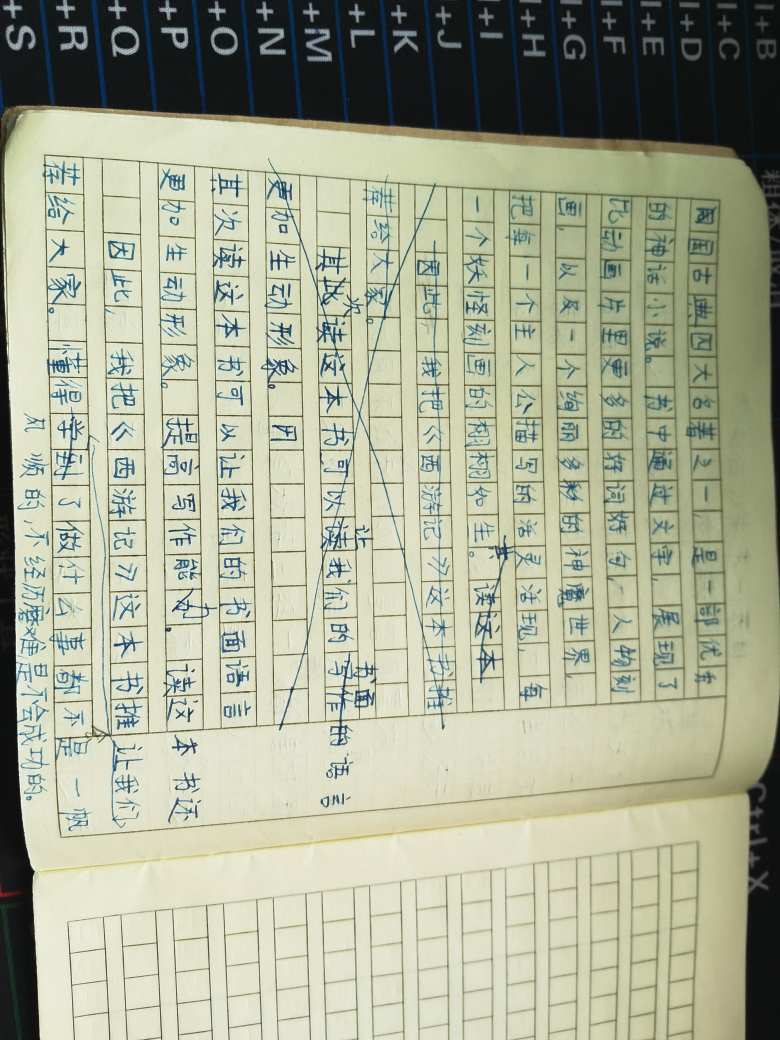 I+B
I+C
I+D
I+E
I+F
I+G
I+H
I+I
I+J
I+K
I+L
I+M
I+N
I+O
I+P
I+Q
I+R
I+S
Ctrl+X
国古典四大名著之一,是一部优秀
的神话小说。书中通过文字,展现了
比动画片里更多的好词好句,人物刻
画,以及一个绚丽多彩的神魔世界,
把每一个主人公描写的活灵活现,每
一个妖怪刻画的栩栩如生。其读这本
因此 我把《西游记》这本书推
荐给大家。
其次读这本书可以让我们的书面语言
更加生动形象。因
其次读这本书可以让我们的书面语言
更加生动形象。提高写作能力。读这本书还
因此,我把《西游记》这本书推 让我们
荐给大家。懂得学到了做什么事都不是一帆
风顺的,不经历磨难是不会成功的。